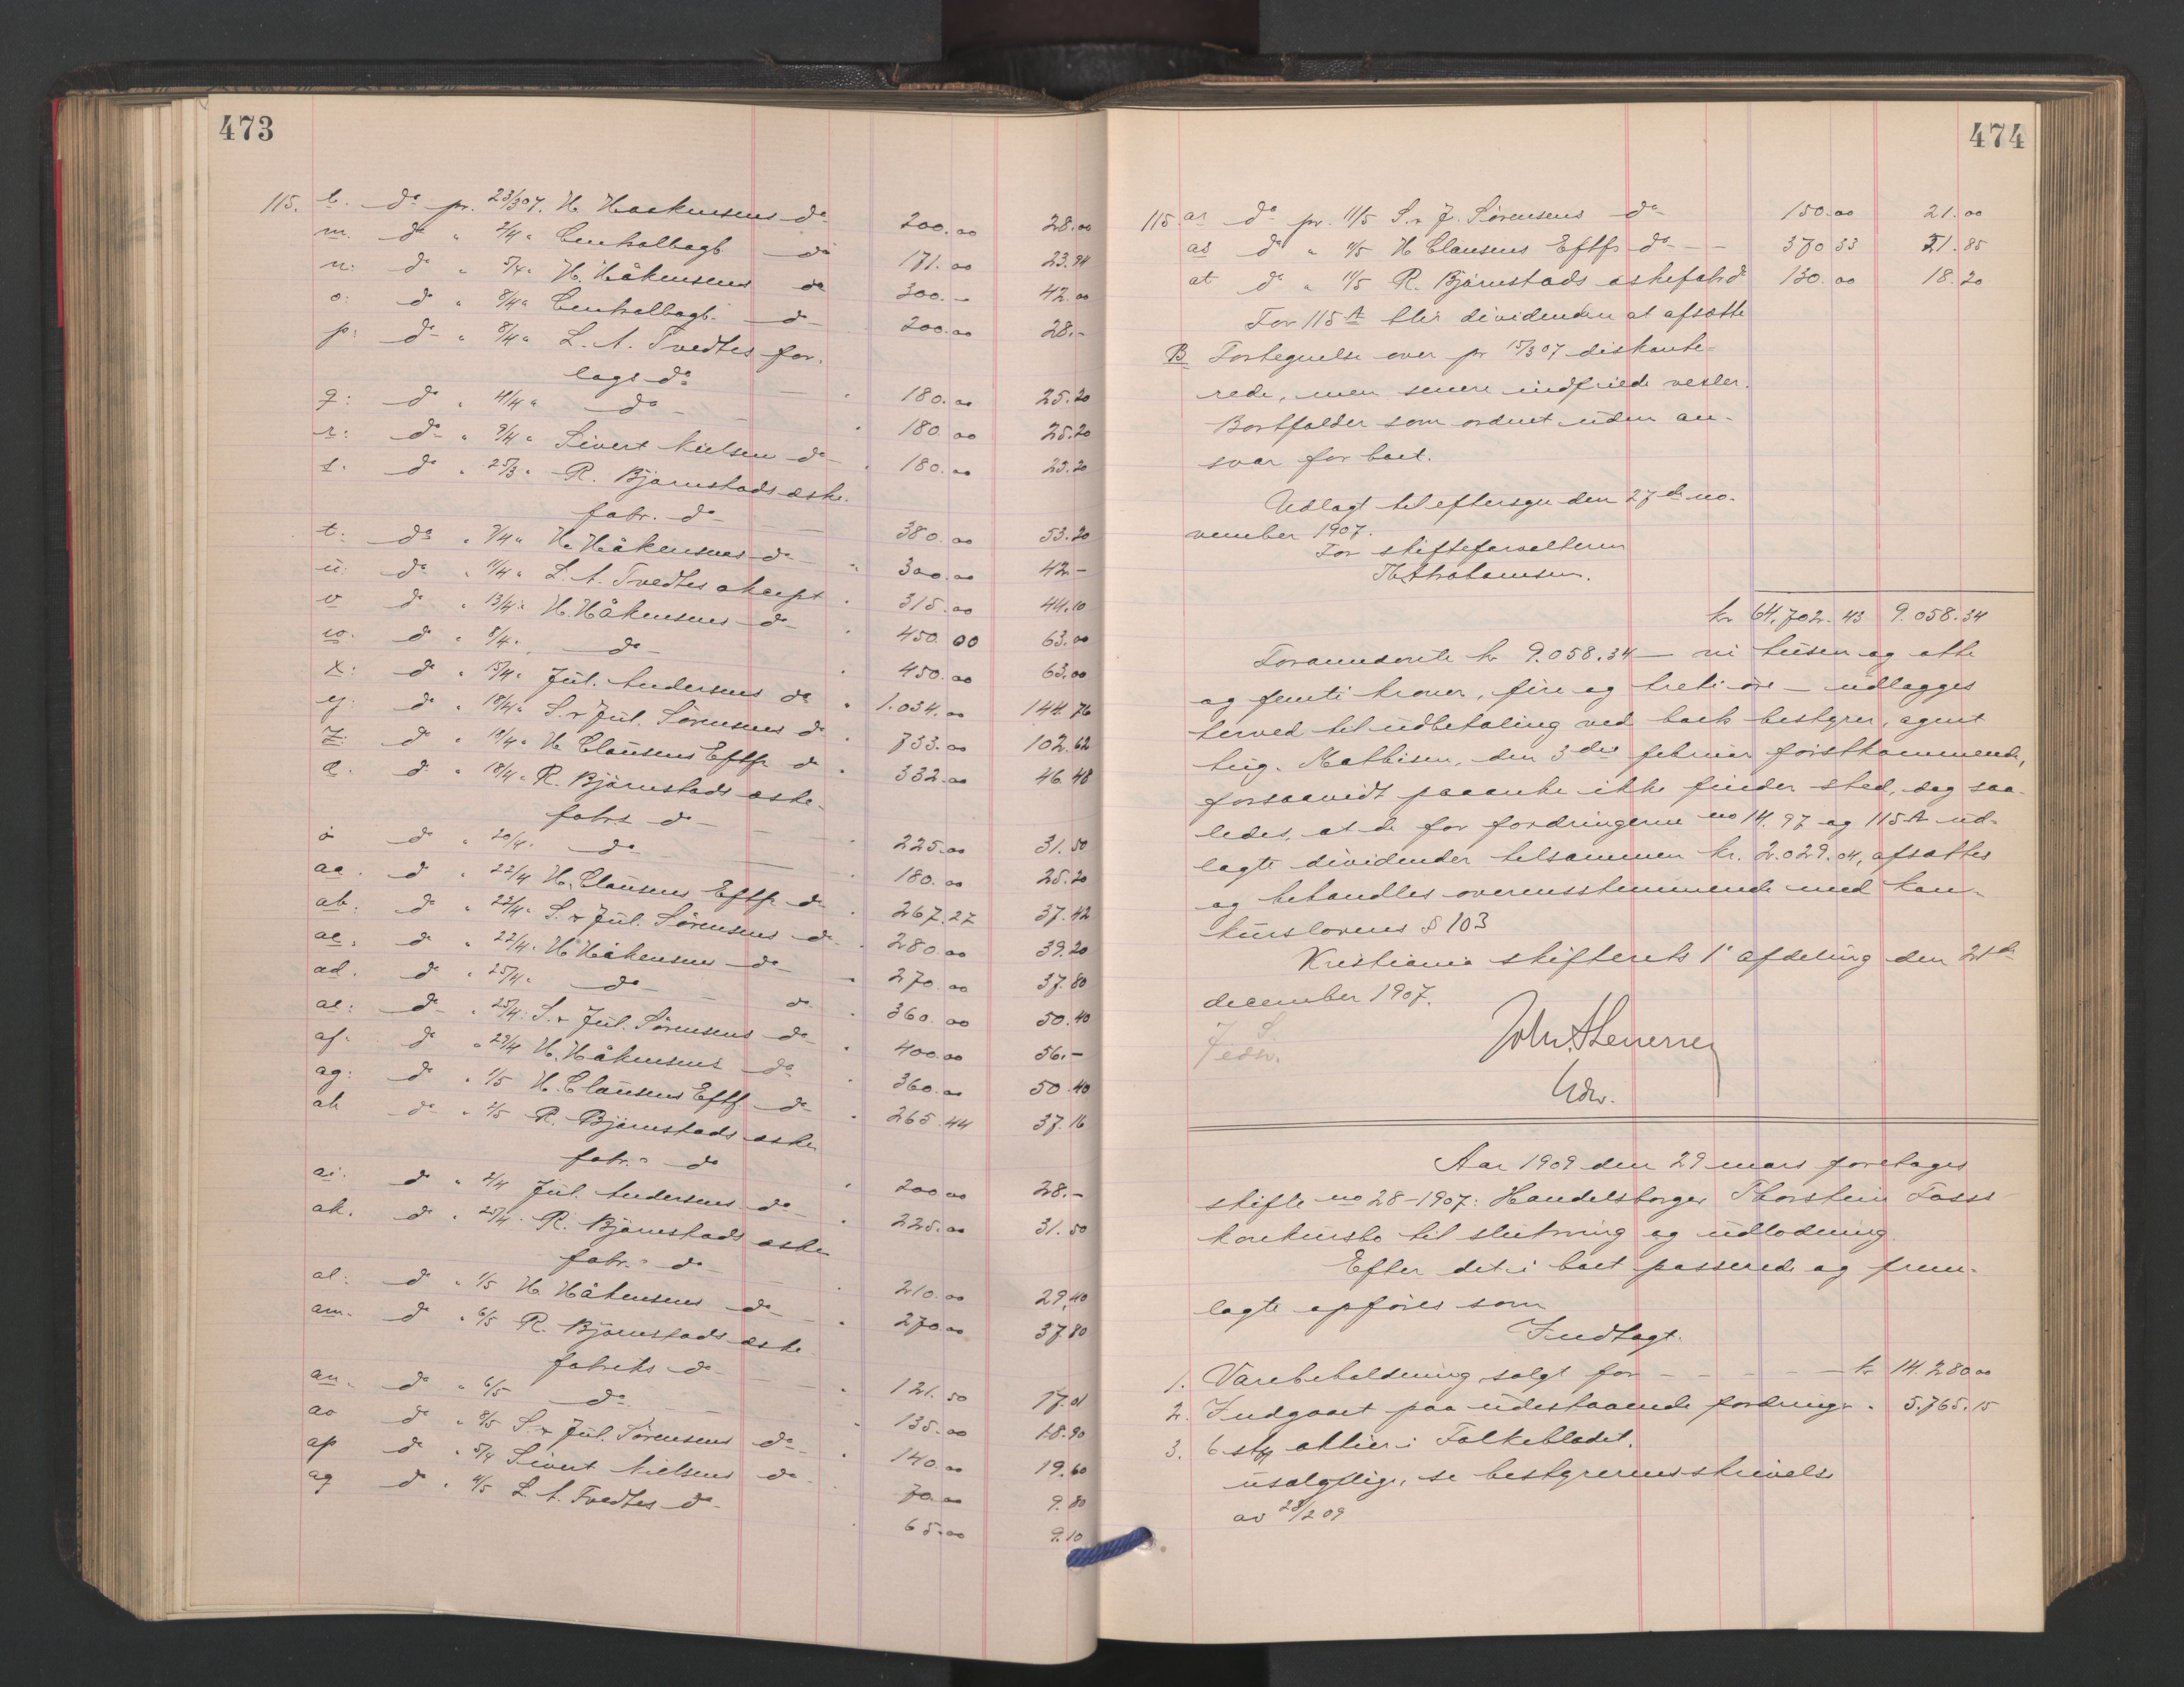 473
115. l. do pr. 23/3 07. H. Haakensens do 200.00 28.00
m. do " 2/4 " Centralbogb. do 171.00 23.94
n: do " 5/4 " H. Håkensens do 300.- 42.00
o: do " 8/4 " Centralbogb. do 200.00 28.-
p: do " 8/4 " L. A. Tvedtes for-
lags do 180.00 25.20
q: do " 11/4 " do 180.00 25.20
r: do " 9/4 " Sivert Nielsen do 180.00 25.20
s. do " 25/3 " R. Bjørnstads æske-
fabr. do 380.00 53.20
t: do " 7/4 " H. Håkensens do " 300.00 42-
u: do " 11/4 " L. A. Tvedtes akcept " 315.00 44.10
v do " 13/4 " H. Håkensens do " 450.00 63.00
w. do " 8/4 " do " 450.00 63.00
x: do " 15/4 " Jul. Andersens do " 1.034.00 144.76
y: do " 18/4 " S. & Jul. Sørensens do " 733.00 102.62
z: do " 18/4 " H. Clausens Eftf. do " 332.00 46.48
æ. do " 18/4 " R. Bjørnstads æske-
fabrs do " 225.00 31.50
ø do " 20/4 " do " 180.00 25.20
aa. do " 22/4 H. Clausens Eftf. do " 267.27 37.42
ab: do " 22/4 " S. & Jul. Sørensens do " 280.00 39.20
ac. do " 22/4 " H. Håkensens do " 270.00 37.80
ad. do " 25/4 " do do " 360.00 50.40
ae: do " 25/4 : S. & Jul. Sørensens do " 400.00 56.-
af. do " 29/4 H. Håkensens do " 360.00 50.40
ag: do " 1/5 H. Clausens Eftf. do " 265.44 37.16
ah do " 2/5 R. Bjørnstads æske
fabr. do " 200.00 28.-
ai. do " 2/4 Jul. Andersens do " 225.00 31.50
ak. do " 25/4 R. Bjørnstads æske
fabr. do " 210.00 29.40
al: do " 1/5 H. Håkensens do " 270.00 37.80
am. do " 6/5 R. Bjørnstads æske
fabriks do " 121.50 17.01
an. do " 6/5 do " 135.00 18.90
ao do " 8/5 S. & Jul. Sørensens do " 140.00 19.60
ap do " 5/4 Sivert Nielsens do " 70.00 9.80
aq do " 4/5 L. A. Tvedtes do " 65.00 9.10
474
115. ar do pr. 11/5 S. & J. Sørensens do 150.00 21.00
as do " 11/5 H. Clausens Eftf. do 370 33 51.85
at do " 11/5 R. Bjørnstads æskefab. do 130.00 18.20
For 115 A blir dividenden at afsætte
B Fortegnelse over pr 15/3 07 diskonte-
rede, men senere indfriede vexler.
Bortfalder som ordnet uden an-
svar for boet.
Udlagt til eftersyn den 27de no-
vember 1907.
For skifteforvalteren
Th Abrahamsen.
kr 64.702.43 9.058.34
Forannævnte kr 9.058.34 - ni tusen og otte
og femti kroner, fire og treti øre - udlægges
herved til udbetaling ved boets bestyrer, agent
Aug. Mathisen, den 3die februar førstkommende,
forsaavidt paaanke ikke finder sted, dog saa-
ledes, at de for fordringerne no 14. 97 og 115 A ud-
lagte dividender tilsammen kr. 2.029.04, afsættes
og behandles overensstemmende med kon-
kurslovens § 103
Kristiania skifterets 1' afdeling den 21de
december 1907.
Aar 1909 den 29 mars foretages
skifte no 28-1907: Handelsborger Thorstein Foss's
konkursbo til slutning og udlodning.
Efter det i boet passerede og frem-
lagte opføres som
Indtægt.
1. Varebeholdning solgt for kr 14.280 00
2. Indgaaet paa udestaaende fordringer " 5.765.15
3. 6 stk aktier i Folkebladet.
usælgelige, se bestyrerens skrivelse
av 28/2 09